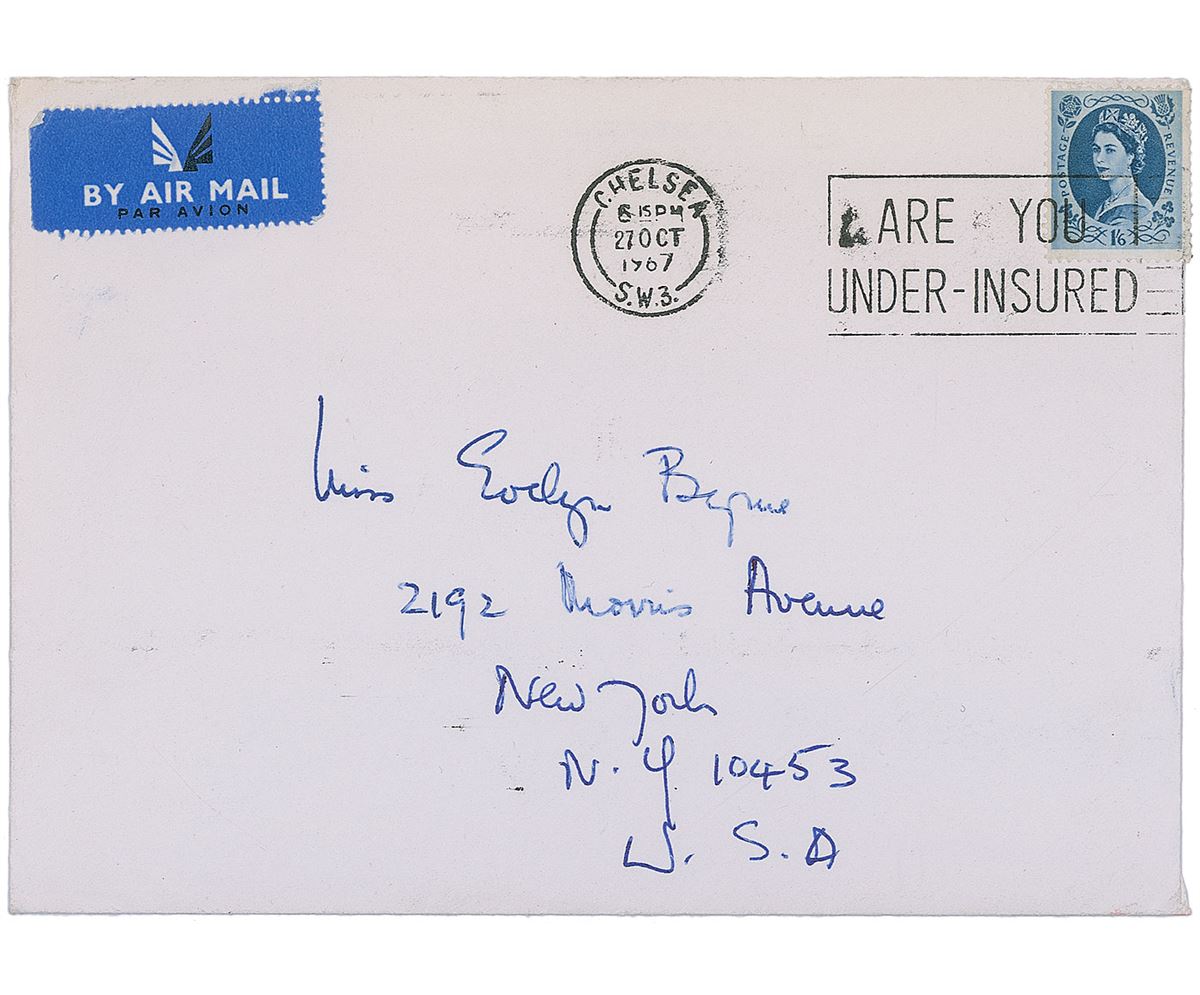 BY AIR MAIL
PAR AVION
CHELSEA
6 15 PM
27 OCT
1967
S.W.3.
POSTAGE REVENUE
1/6
ARE YOU
UNDER-INSURED
Miss Evelyn Byrne
2192 Morris Avenue
New York
N. Y 10453
U. S. A